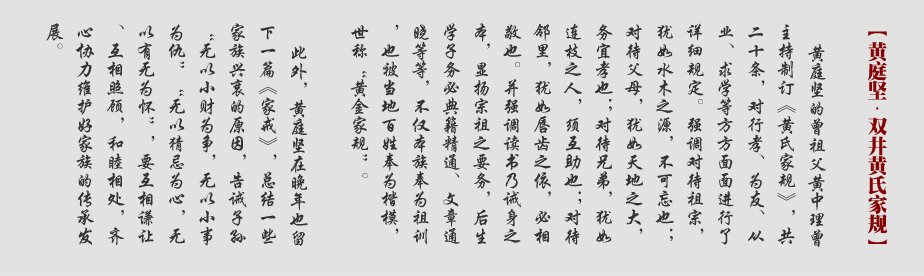 【黄庭坚·双井黄氏家规】
黄庭坚的曾祖父黄中理曾
主持制订《黄氏家规》，共
二十条，对行孝、为友、从
业、求学等方方面面进行了
详细规定。强调对待祖宗，
犹如水木之源，不可忘也；
对待父母，犹如天地之大，
务宜孝也；对待兄弟，犹如
连枝之人，须互助也；对待
邻里，犹如唇齿之依，必相
敬也。并强调读书乃诚身之
本，显扬宗祖之要务，后生
学子务必典籍精通、文章通
晓等等，不仅本族奉为祖训
，也被当地百姓奉为楷模，
世称“黄金家规”。
此外，黄庭坚在晚年也留
下一篇《家戒》，总结一些
家族兴衰的原因，告诫子孙
“无以小财为争，无以小事
为仇”“无以猜忌为心，无
以有无为怀”，要互相谦让
、互相照顾，和睦相处，齐
心协力维护好家族的传承发
展。